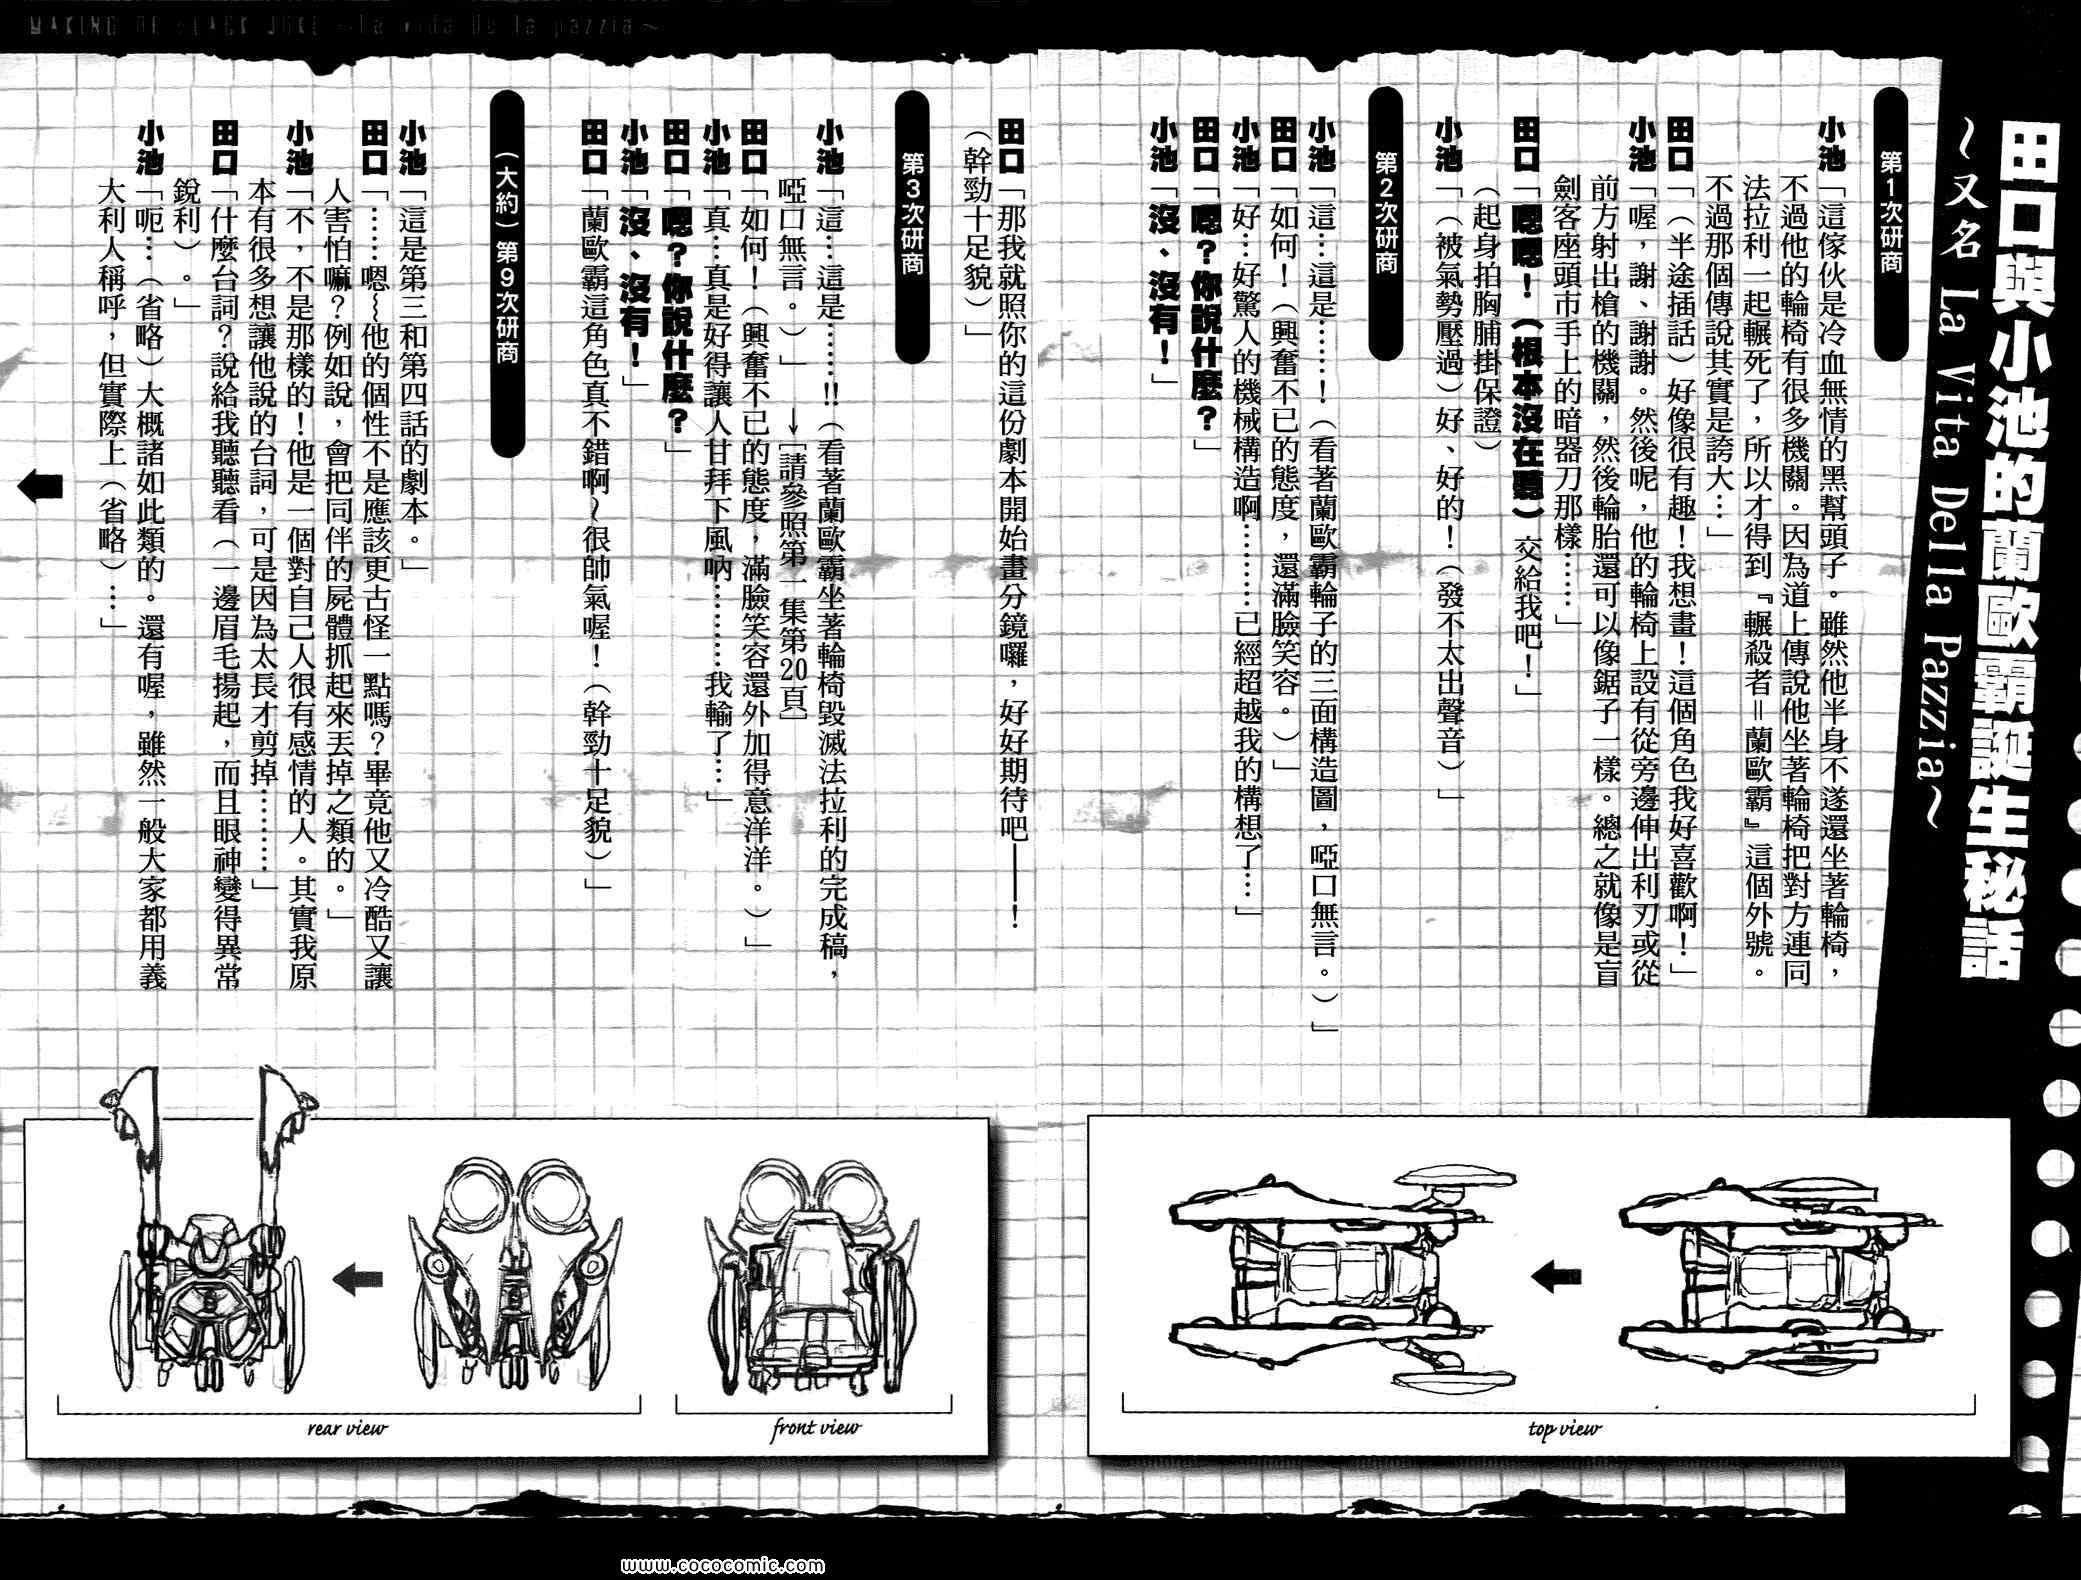 田口與小池的蘭歐霸誕生秘話
～又名 La Vita Della Pazzia～
第1次研商
小池「這傢伙是冷血無情的黑幫頭子。雖然他半身不遂還坐著輪椅，
不過他的輪椅有很多機關。因為道上傳說他坐著輪椅把對方連同
法拉利一起輾死了，所以才得到『輾殺者＝蘭歐霸』這個外號。
不過那個傳說其實是誇大…」
田口「（半途插話）好像很有趣！我想畫！這個角色我好喜歡啊！」
小池「喔，謝、謝謝。然後呢，他的輪椅上設有從旁邊伸出利刃或從
前方射出槍的機關，然後輪胎還可以像鋸子一樣。總之就像是盲
劍客座頭市手上的暗器刀那樣……」
田口「嗯嗯！（根本沒在聽）交給我吧！」
（起身拍胸脯掛保證）
小池「（被氣勢壓過）好、好的！（發不太出聲音）」
第2次研商
小池「這…這是……！（看著蘭歐霸輪子的三面構造圖，啞口無言。）」
田口「如何！（興奮不已的態度，還滿臉笑容。）」
小池「好…好驚人的機械構造啊………已經超越我的構想了…」
田口「嗯？你說什麼？」
小池「沒、沒有！」
田口「那我就照你的這份劇本開始畫分鏡囉，好好期待吧——！
（幹勁十足貌）」
第3次研商
小池「這…這是……!!（看著蘭歐霸坐著輪椅毀滅法拉利的完成稿，
啞口無言。）」 →［請參照第一集第20頁］
田口「如何！（興奮不已的態度，滿臉笑容還外加得意洋洋。）」
小池「真…真是好得讓人甘拜下風吶………我輸了…」
田口「嗯？你說什麼？」
小池「沒、沒有！」
田口「蘭歐霸這角色真不錯啊～很帥氣喔！（幹勁十足貌）」
（大約）第9次研商
小池「這是第三和第四話的劇本。」
田口「……嗯～他的個性不是應該更古怪一點嗎？畢竟他又冷酷又讓
人害怕嘛？例如說，會把同伴的屍體抓起來丟掉之類的。」
小池「不，不是那樣的！他是一個對自己人很有感情的人。其實我原
本有很多想讓他說的台詞，可是因為太長才剪掉………」
田口「什麼台詞？說給我聽聽看（一邊眉毛揚起，而且眼神變得異常
銳利）。」
小池「呃…（省略）大概諸如此類的。還有喔，雖然一般大家都用義
大利人稱呼，但實際上（省略）…」
top view
front view
rear view
www.cococomic.com